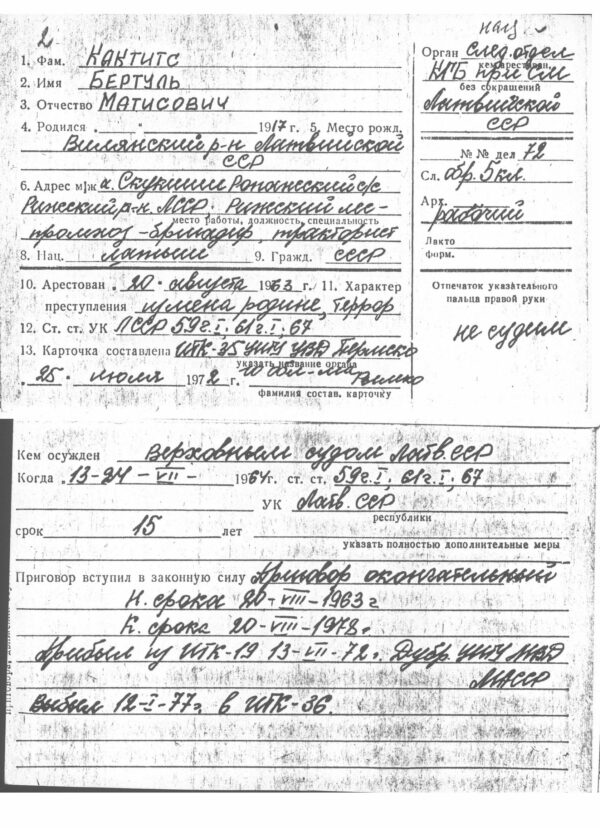 2
1. Фам. КАКТИТС
2. Имя БЕРТУЛЬ
3. Отчество МАТИСОВИЧ
4. Родился 1917 г. 5. Место рожд.
Вилянский р-н Латвийской
ССР
6. Адрес м/ж х. Скукиши Ропажский с/с
Рижский р-н ЛССР. Рижский лес-
место работы, должность, специальность
промхоз - бригадир, тракторист
8. Нац. латыш 9. Гражд. СССР
10. Арестован 20 августа 1963 г. 11. Характер
преступления измена родине, террор
12. Ст. ст. УК ЛССР 59 ч. I, 61 ч. I, 67
13. Карточка составлена ИТК-35 УИТУ УВД Пермско
указать название органа
25 июля 1972 г. го обл-ма
фамилия состав. карточку
нац
Орган след. отдел
кем арестован,
КГБ при СМ
без сокращений
Латвийской
ССР
№ № дел 72
Сл. обр. 5 кл.
Арх.
рабочий
Дакто
форм.
Отпечаток указательного
пальца правой руки
не судим
Кем осужден Верховным судом Латв. ССР
Когда 13-24-VII- 1964 г. ст. ст. 59 ч. I, 61 ч. I, 67
УК Латв. ССР
республики
срок 15 лет
указать полностью дополнительные меры
Приговор вступил в законную силу Приговор окончательный
Н. срока 20-VIII-1963 г
К. срока 20-VIII-1978 г.
Прибыл из ИТК-19 13-VII-72 г. Дубр. УИТУ МВД
МАССР
Выбыл 12-I-77 г. в ИТК-36.